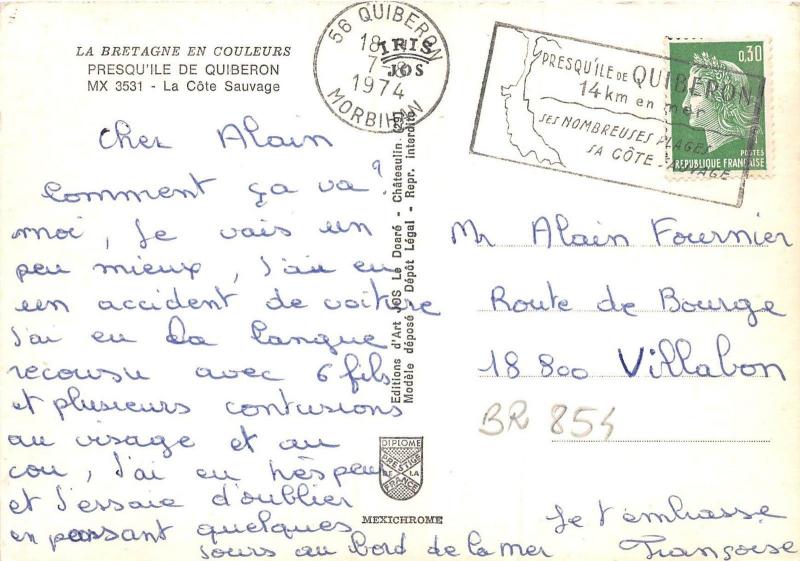 LA BRETAGNE EN COULEURS
PRESQU'ILE DE QUIBERON
MX 3531 - La Côte Sauvage
Cher Alain
Comment ça va?
moi, je vais un
peu mieux, j'ai eu
un accident de voiture
j'ai eu la langue
recousu avec 6 fils
et plusieurs contusions
au visage et au
cou, j'ai eu très peur
et j'essaie d'oublier
en passant quelques
jours au bord de la mer
Je t'embrasse
Françoise
Editions d'Art JOS Le Doaré - Châteaulin. (29)
Modèle déposé - Dépôt Légal - Repr. interdite
IRIS
JOS
DIPLOME
PRESTIGE
DE LA
FRANCE
MEXICHROME
56 QUIBERON
18 H
7-8
1974
MORBIHAN
PRESQU'ILE DE QUIBERON
14 km en mer
SES NOMBREUSES PLAGES
SA CÔTE SAUVAGE
0,30
POSTES
REPUBLIQUE FRANÇAISE
Mr Alain Fournier
Route de Bourge
18 800 Villabon
BR 854